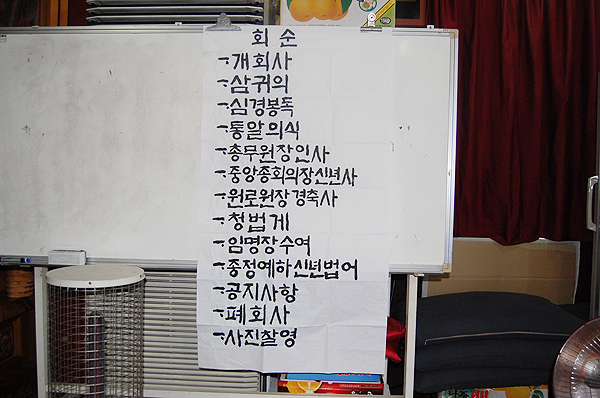 회순
-개회사
-삼귀의
-심경봉독
-통알의식
-총무원장인사
-중앙종회의장신년사
-원로원장경축사
-청법게
-임명장수여
-종정예하신년법어
-공지사항
-폐회사
-사진촬영